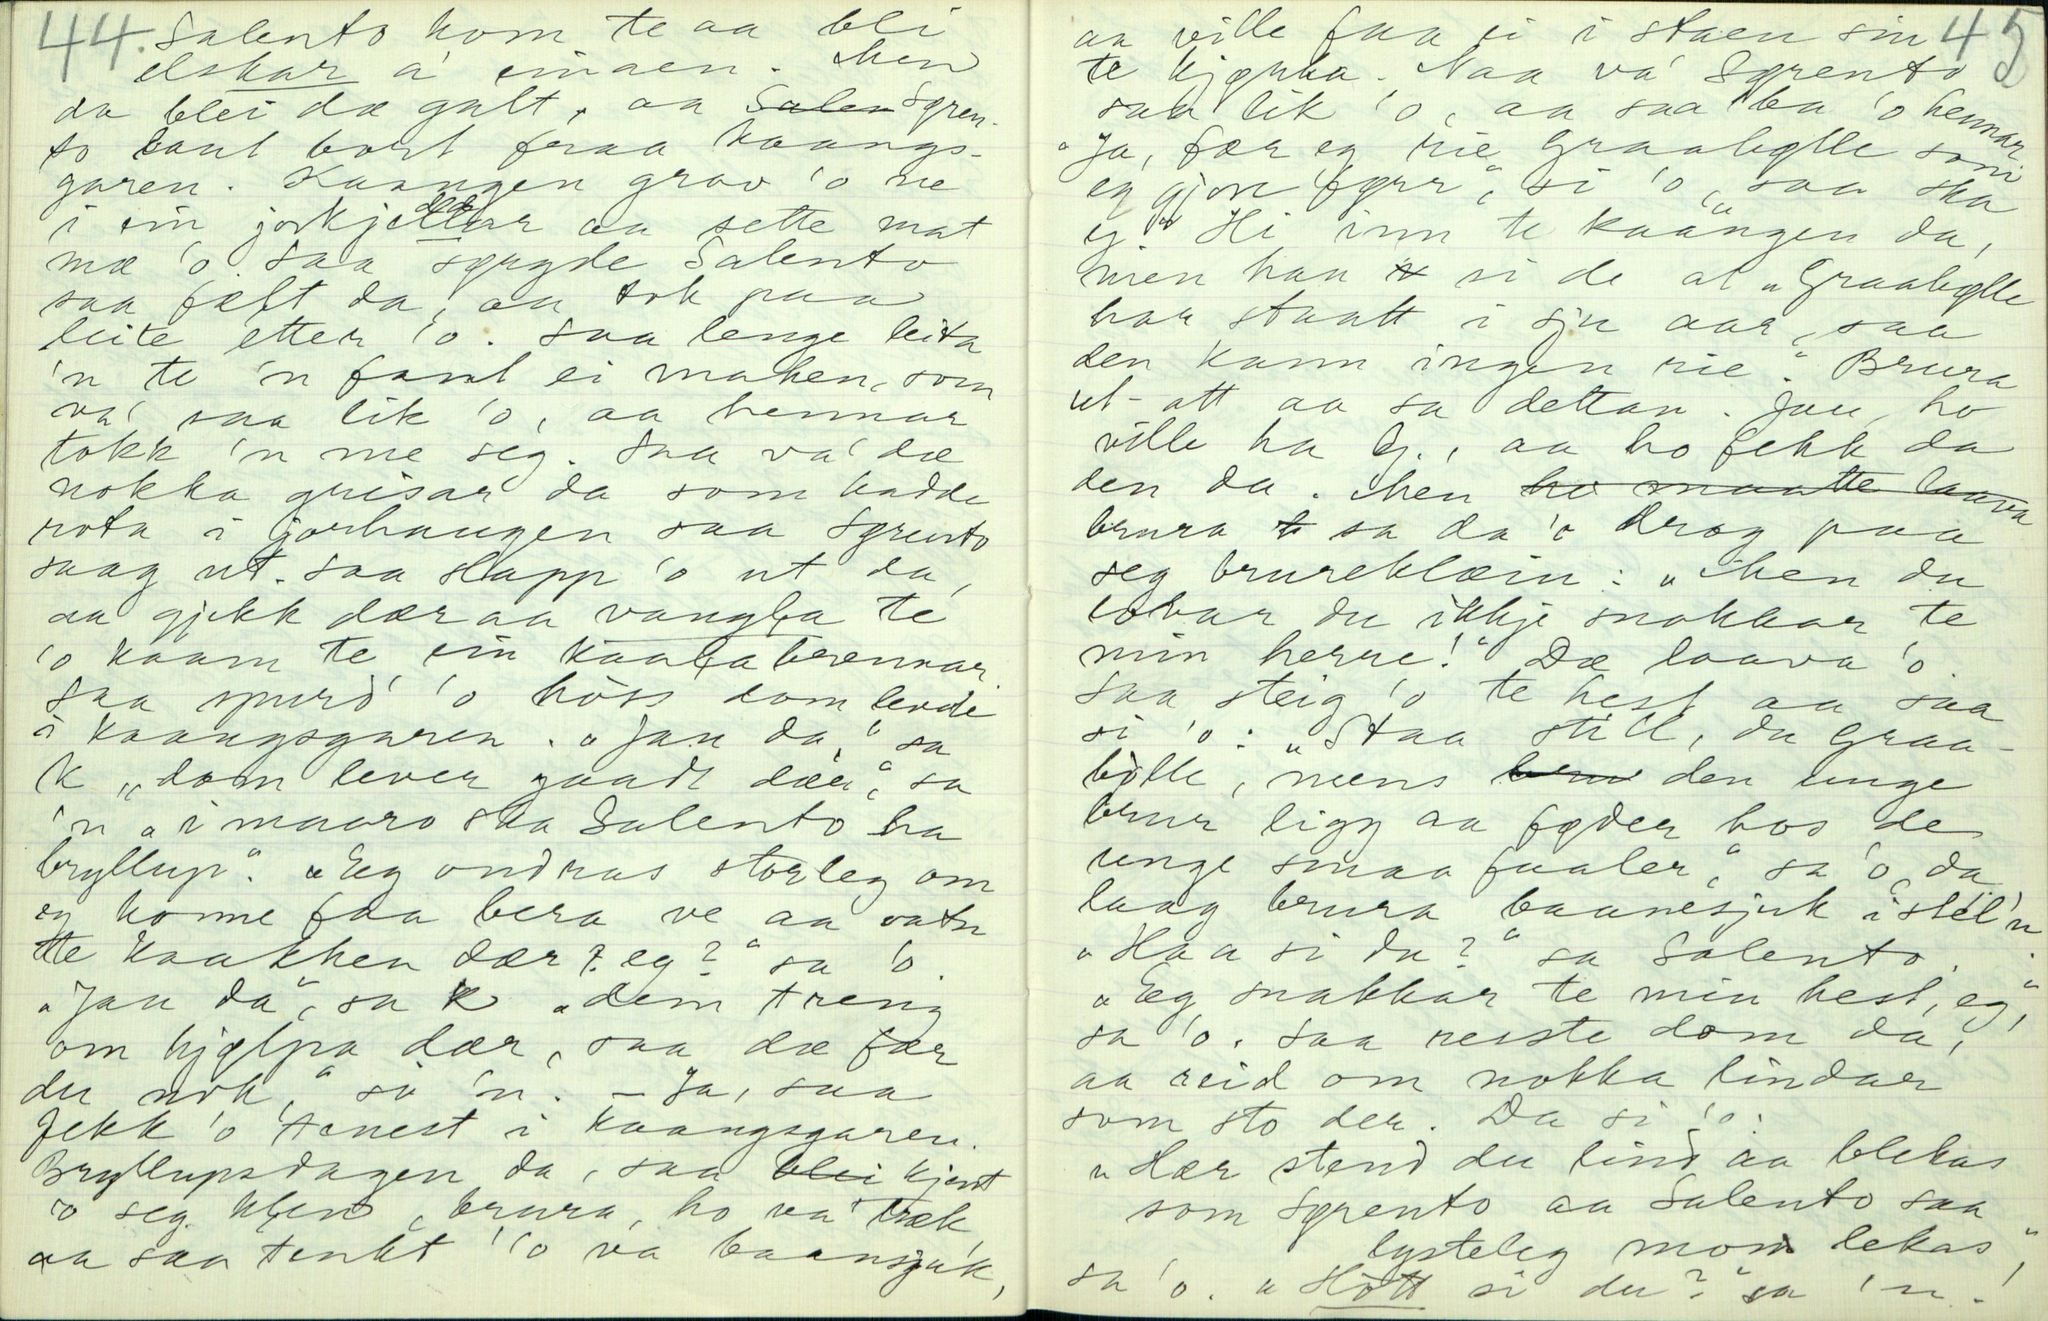 44.
Salento kom te aa bli
elskar a' einaen. Men
da blei dæ galt, aa Salen Søren-
to kant bort fraa kaangs-
garen. Kaangen grov 'o ne
i ein jorkjellar aa sette mat
mæ 'o. Saa sørgde Salento
saa fælt da, aa tok paa
leite etter 'o. Saa lenge leita
'n te 'n fant ei maken, som
va' saa lik 'o, aa hennar
tokk 'n me seg. Saa va' dæ
nokka grisar da som hadde
rota i jorhaugen saa Sørento
saag ut. Saa slapp 'o ut da,
aa gjekk dær aa vangla te
'o kaam te ein kaalabrennar.
Saa spurd' 'o höss dom levde
i kaangsgaren. „Jau da," sa
K „dom lever gaadt dær," sa
'n „i maaro ska Salento ha
bryllup". „Eg ondras storleg om
eg konne faa bera ve aa vatn
te kaakken dær eg?" sa 'o.
„Jau da", sa K „dem treng
om hjølpa dær, saa dæ fær
du nok," si 'n. - Ja, saa
fekk 'o tenest i kaangsgaren.
Bryllupsdagen da, saa blei kjent
'o seg klen, brura, ho va' træk,
aa saa tenkt' 'o va baansjuk,
45
aa ville faa ei i staen sin
te kjørka. Naa va' Sørento
saa lik 'o, aa saa ba 'o hennar.
„Ja, fær eg rie Graabølle som
eg gjore førr", si 'o, „saa ska
eg." Hi inn te kaangen da,
men han si de at „Graabølle
har staatt i sju aar, saa
den kann ingen rie". Brura
ut-att aa sa dettan. Jau, ho
ville ha G., aa ho fekk da
den da. Men ho maatte laava
brura sa da 'o drog paa
seg brureklæin: „Men du
lovar du ikkje snakkar te
min herre!" Dæ laava 'o.
Saa steig 'o te hest aa saa
si 'o: „Staa still, du Graa-
bölle, mens den unge
brur ligg aa føder hos de
unge smaa faaler," sa 'o, da
laag brura baanesjuk i stél'n
„Haa si du?" sa Salento.
„Eg snakkar te min hest, eg,"
sa 'o. Saa reiste dom da,
aa reid om nokka lindar
som sto der. Da si 'o:
„Hær stend du lind aa blekas
som Sørento aa Salento saa
lysteleg mon lekas",
sa 'o. „Hött si du?" sa 'n.